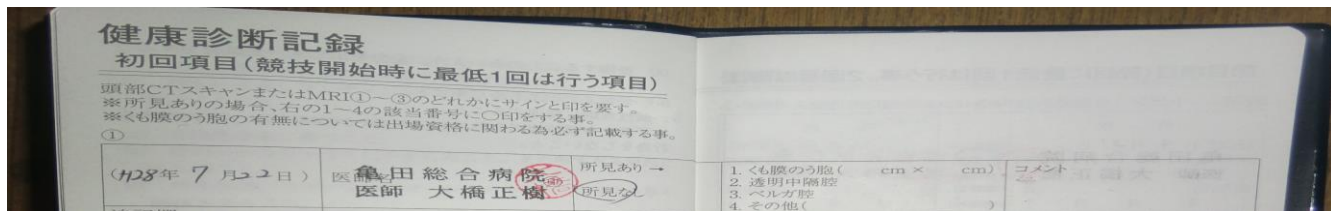 健康診断記録
初回項目(競技開始時に最低1回は行う項目)
頭部CTスキャンまたはMRI①～③のどれかにサインと印を要す。
※所見ありの場合、右の1～4の該当番号に○印をする事。
※くも膜のう胞の有無については出場資格に関わる為必ず記載する事。
①
(H28年 7 月22日)
医師名
亀田総合病院
医師 大橋正樹
所見あり→
所見なし
1. くも膜のう胞( cm × cm)
2. 透明中隔腔
3. ベルガ腔
4. その他( )
コメント